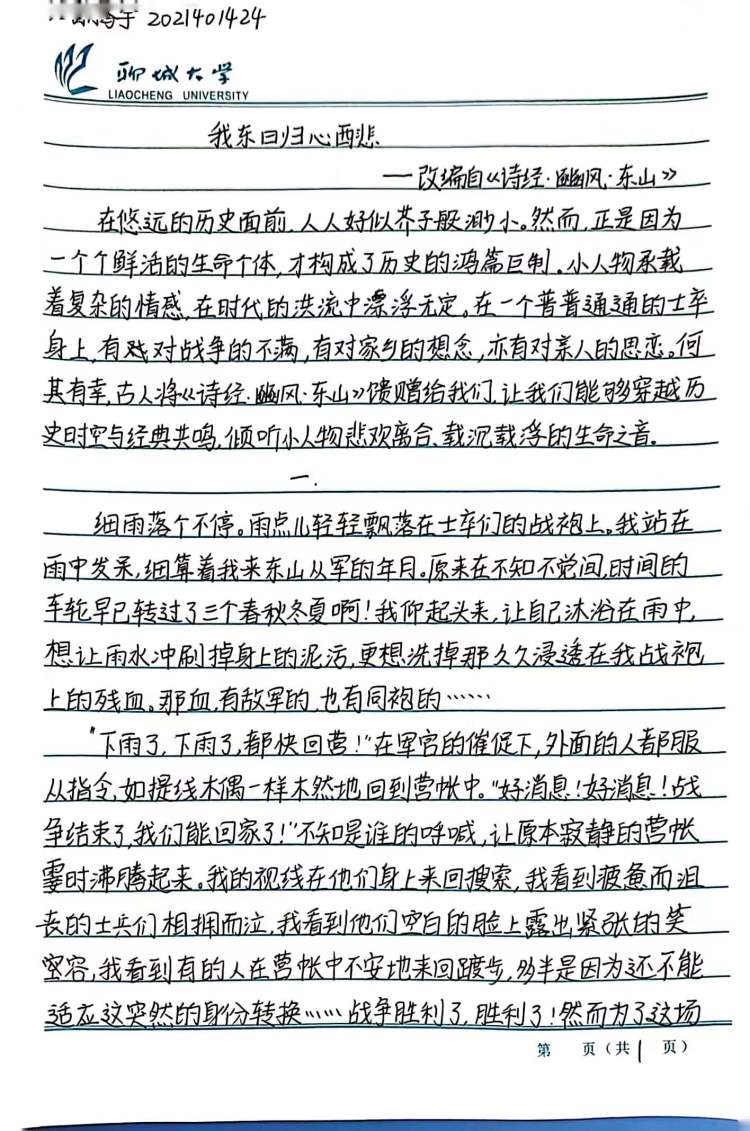 2021401424
聊城大学
LIAOCHENG UNIVERSITY
我东曰归心西悲
——改编自《诗经·豳风·东山》
在悠远的历史面前,人人好似芥子般渺小。然而,正是因为
一个个鲜活的生命个体,才构成了历史的鸿篇巨制。小人物承载
着复杂的情感,在时代的洪流中漂浮无定。在一个普普通通的士卒
身上,有戏对战争的不满,有对家乡的想念,亦有对亲人的思恋。何
其有幸,古人将《诗经·豳风·东山》馈赠给我们,让我们能够穿越历
史时空与经典共鸣,倾听小人物悲欢离合、载沉载浮的生命之音。
一.
细雨落个不停。雨点儿轻轻飘落在士卒们的战袍上。我站在
雨中发呆,细算着我来东山从军的年月。原来在不知不觉间,时间的
车轮早已转过了三个春秋冬夏啊!我仰起头来,让自己沐浴在雨中,
想让雨水冲刷掉身上的泥污,更想洗掉那久久浸透在我战袍
上的残血。那血,有敌军的,也有同袍的……
“下雨了,下雨了,都快回营!”在军官的催促下,外面的人都服
从指令,如提线木偶一样木然地回到营帐中。“好消息!好消息!战
争结束了,我们能回家了!”不知是谁的呼喊,让原本寂静的营帐
霎时沸腾起来。我的视线在他们身上来回搜索,我看到疲惫而沮
丧的士兵们相拥而泣,我看到他们空白的脸上露出紧张的笑
容,我看到有的人在营帐中不安地来回踱步,多半是因为还不能
适应这突然的身份转换……战争胜利了,胜利了!然而为了这场
第 页(共1 页)